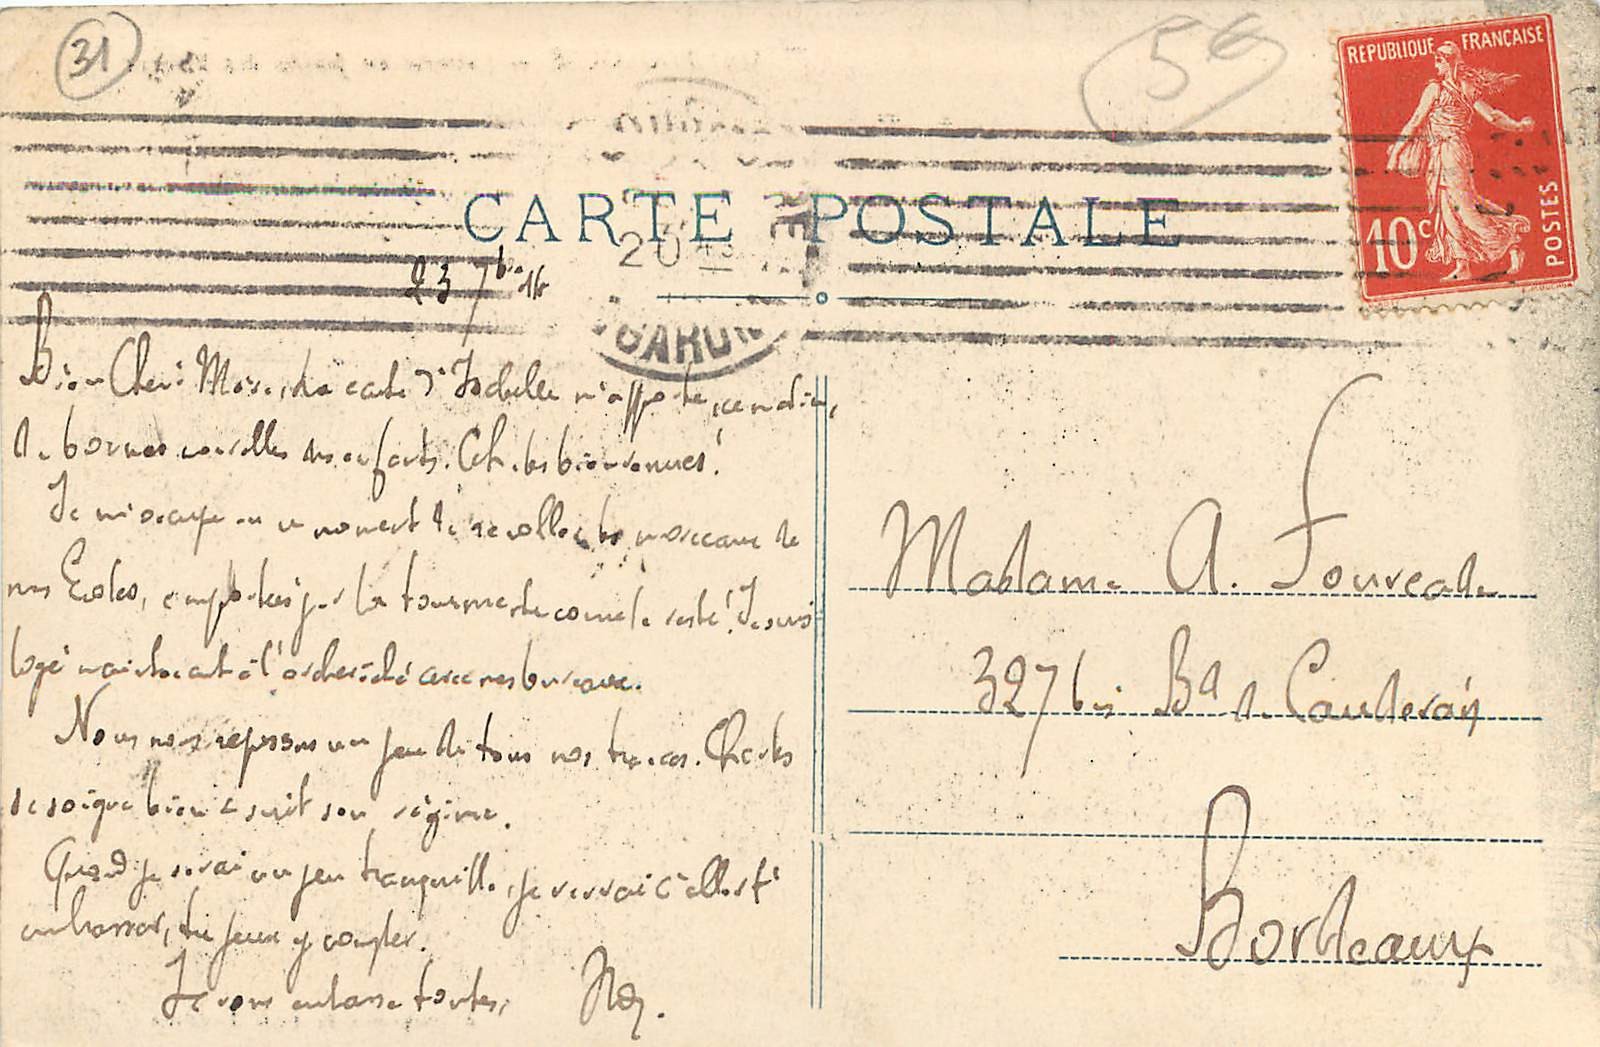 31
5€
REPUBLIQUE FRANÇAISE
10c
POSTES
CARTE POSTALE
GARON
23 7b. 16
Bien Cher Mère, la carte d'Isabelle m'apporte, ce matin,
de bonnes nouvelles des enfants.
Je m'occupe en ce moment de recoller les morceaux de
nos Ecoles, emportées par la tourmente comme le reste! Je suis
logé maintenant à l'archevêché avec mes bureaux.
Nous nous reposons un peu de tous nos tracas. Charles
se soigne bien & suit son régime.
Quand je serai un peu tranquille, je verrai à aller t'
embrasser, tu peux y compter.
Je vous embrasse toutes,
Madame A. Foureade
327 bis Bd de Cauderan
Bordeaux